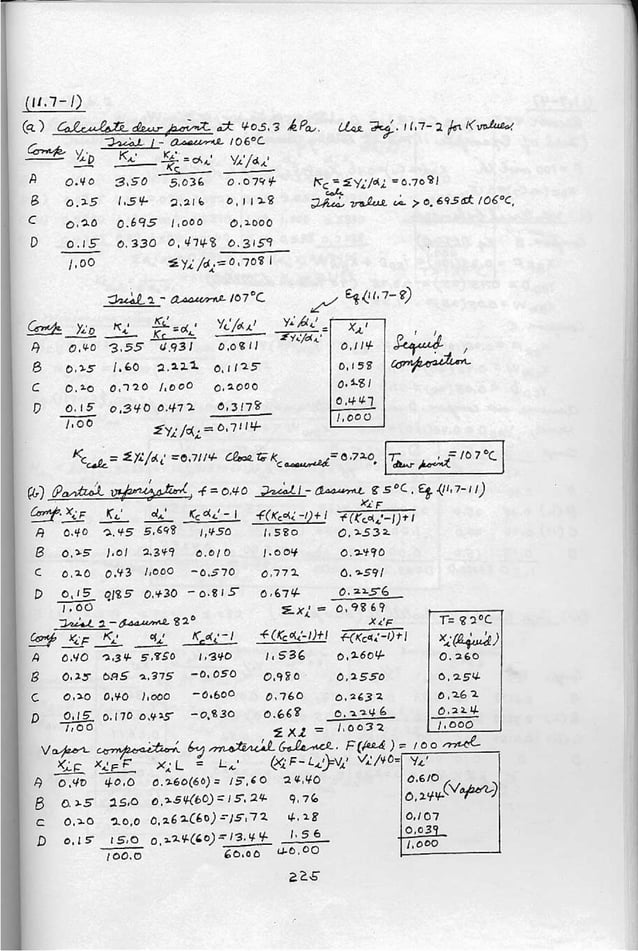 (11.7-1)
(a) Calculate dew point at 405.3 kPa. Use Fig. 11.7-2 for K values.
Trial 1 - assume 106°C
Comp YiD Ki Ki/Kc=αi Yi/αi
A 0.40 3.50 5.036 0.0794 Kc calc = ΣYi/αi = 0.7081
B 0.25 1.54 2.216 0.1128 This value is > 0.695 at 106°C.
C 0.20 0.695 1.000 0.2000
D 0.15 0.330 0.4748 0.3159
1.00 ΣYi/αi = 0.7081
Trial 2 - assume 107°C Eq (11.7-8)
Comp YiD Ki Ki/Kc=αi Yi/αi (Yi/αi)/(ΣYi/αi) = Xi
A 0.40 3.55 4.931 0.0811 0.114 Liquid
B 0.25 1.60 2.222 0.1125 0.158 composition
C 0.20 0.720 1.000 0.2000 0.281
D 0.15 0.340 0.472 0.3178 0.447
1.00 ΣYi/αi = 0.7114 1.000
Kc calc = ΣYi/αi = 0.7114 Close to Kc assumed = 0.720. Tdew point = 107°C
(b) Partial vaporization, f = 0.40 Trial 1 - assume 85°C. Eq (11.7-11)
Comp. XiF Ki αi Kcαi-1 f(Kcαi-1)+1 XiF/f(Kcαi-1)+1
A 0.40 2.45 5.698 1.450 1.580 0.2532
B 0.25 1.01 2.349 0.010 1.004 0.2490
C 0.20 0.43 1.000 -0.570 0.772 0.2591
D 0.15 0.185 0.430 -0.815 0.674 0.2256
1.00 ΣXi = 0.9869
Trial 2 - assume 82° T = 82°C
Comp XiF Ki αi Kcαi-1 f(Kcαi-1)+1 XiF/f(Kcαi-1)+1 Xi (liquid)
A 0.40 2.34 5.850 1.340 1.536 0.2604 0.260
B 0.25 0.95 2.375 -0.050 0.980 0.2550 0.254
C 0.20 0.40 1.000 -0.600 0.760 0.2632 0.262
D 0.15 0.170 0.425 -0.830 0.668 0.2246 0.224
1.00 ΣXi = 1.0032 1.000
Vapor composition by material balance. F (feed) = 100 mol
XiF XiFF XiL = Li (XiF-Li)=Vi Vi/40= Yi
A 0.40 40.0 0.260(60) = 15.60 24.40 0.610
B 0.25 25.0 0.254(60) = 15.24 9.76 0.244 (Vapor)
C 0.20 20.0 0.262(60) = 15.72 4.28 0.107
D 0.15 15.0 0.224(60) = 13.44 1.56 0.039
100.0 60.00 40.00 1.000
225